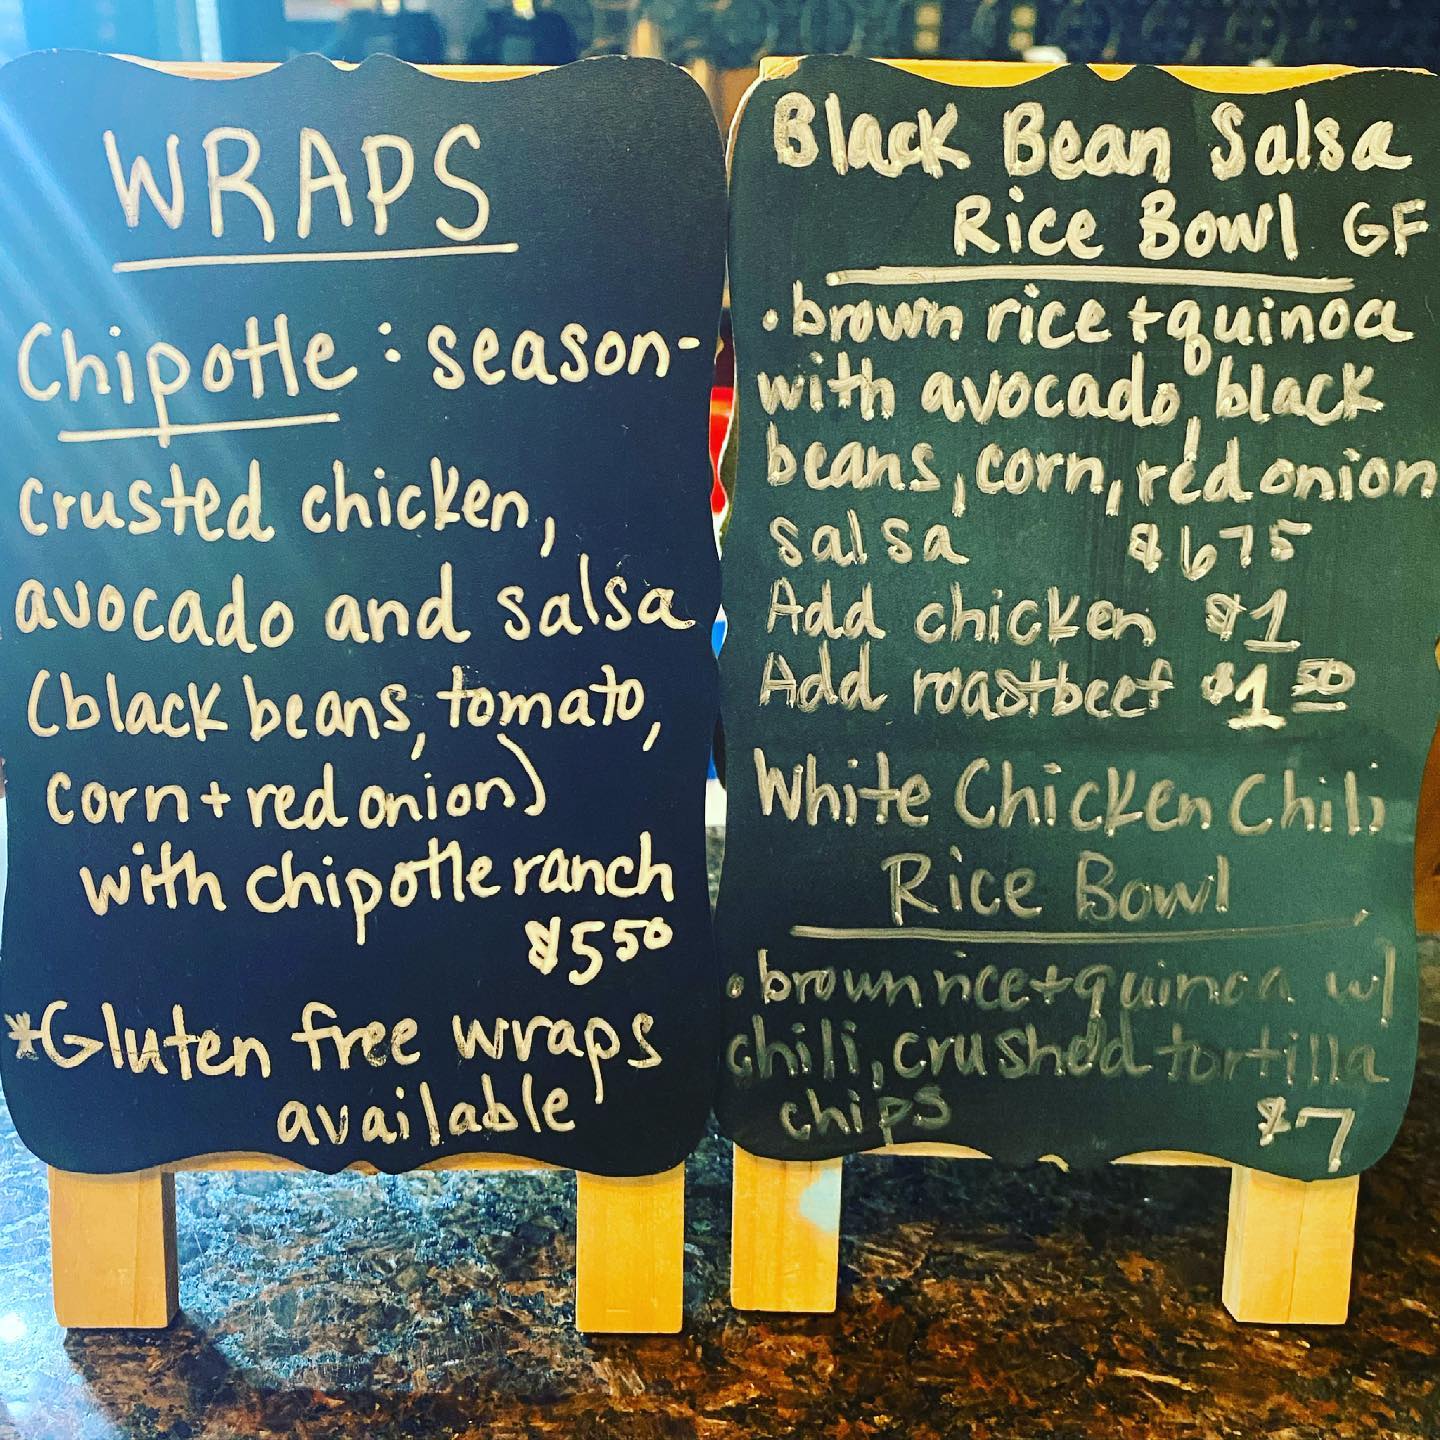 WRAPS
Chipotle : season-
crusted chicken,
avocado and salsa
(black beans, tomato,
corn + red onion)
with chipotle ranch
$5 50
*Gluten free wraps
available
Black Bean Salsa
Rice Bowl GF
• brown rice + quinoa
with avocado, black
beans, corn, red onion
salsa $675
Add chicken $1
Add roastbeef $1 50
White Chicken Chili
Rice Bowl
• brown rice + quinoa w/
chili, crushed tortilla
chips $7